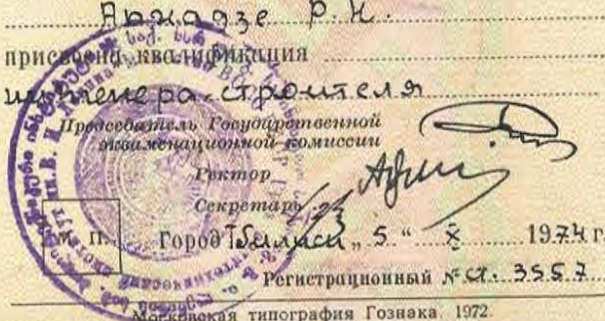 Р. Н.
присвоена квалификация
инженера-строителя
Председатель Государственной
экзаменационной комиссии
Ректор
Секретарь
М. П.
Город Тбилиси „ 5 “ X 1974 г.
Регистрационный № ст. 3557
Московская типография Гознака. 1972.